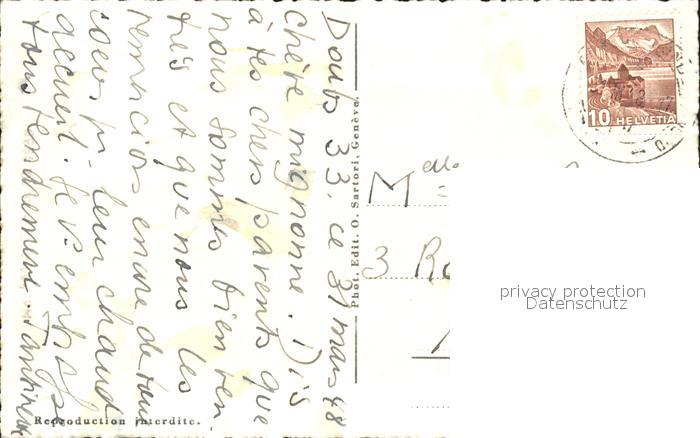 Doubs 33, ce 31 mars 48
Chère mignonne. Dis
à tes chers parents que
nous sommes bien ren
trés et que nous les
remercions encore de tout
coeur pr. leur chaud
accueil. Je vs embrasse
tous tendrement.
Phot. Edit. O. Sartori, Genève.
Reproduction interdite.
10 HELVETIA
Melle
3
privacy protection
Datenschutz